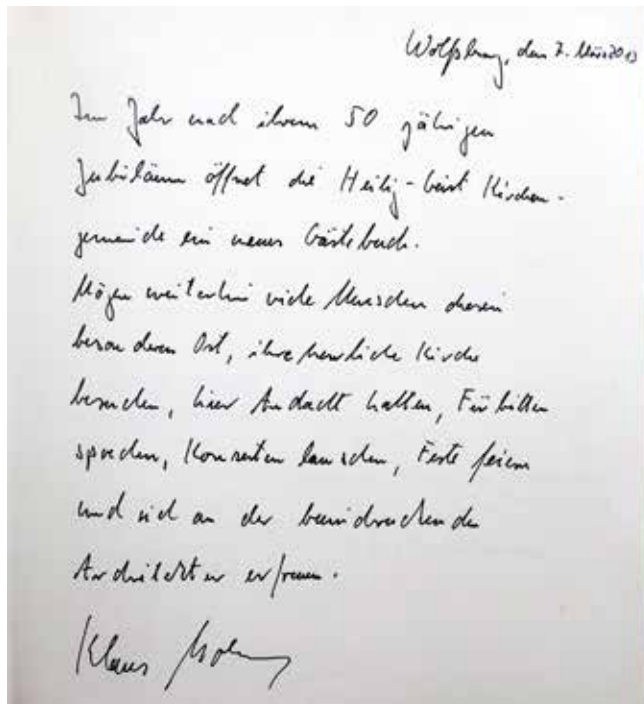 Wolfsburg, den 7. März 2013
Im Jahr nach ihrem 50 jährigen
Jubiläum öffnet die Heilig-Geist Kirchen-
gemeinde ein neues Gästebuch.
Mögen weiterhin viele Menschen diesen
besonderen Ort, ihre herrliche Kirche
besuchen, hier Andacht halten, Fürbitten
sprechen, Konzerten lauschen, Feste feiern
und sich an der beeindruckenden
Architektur erfreuen.
Klaus